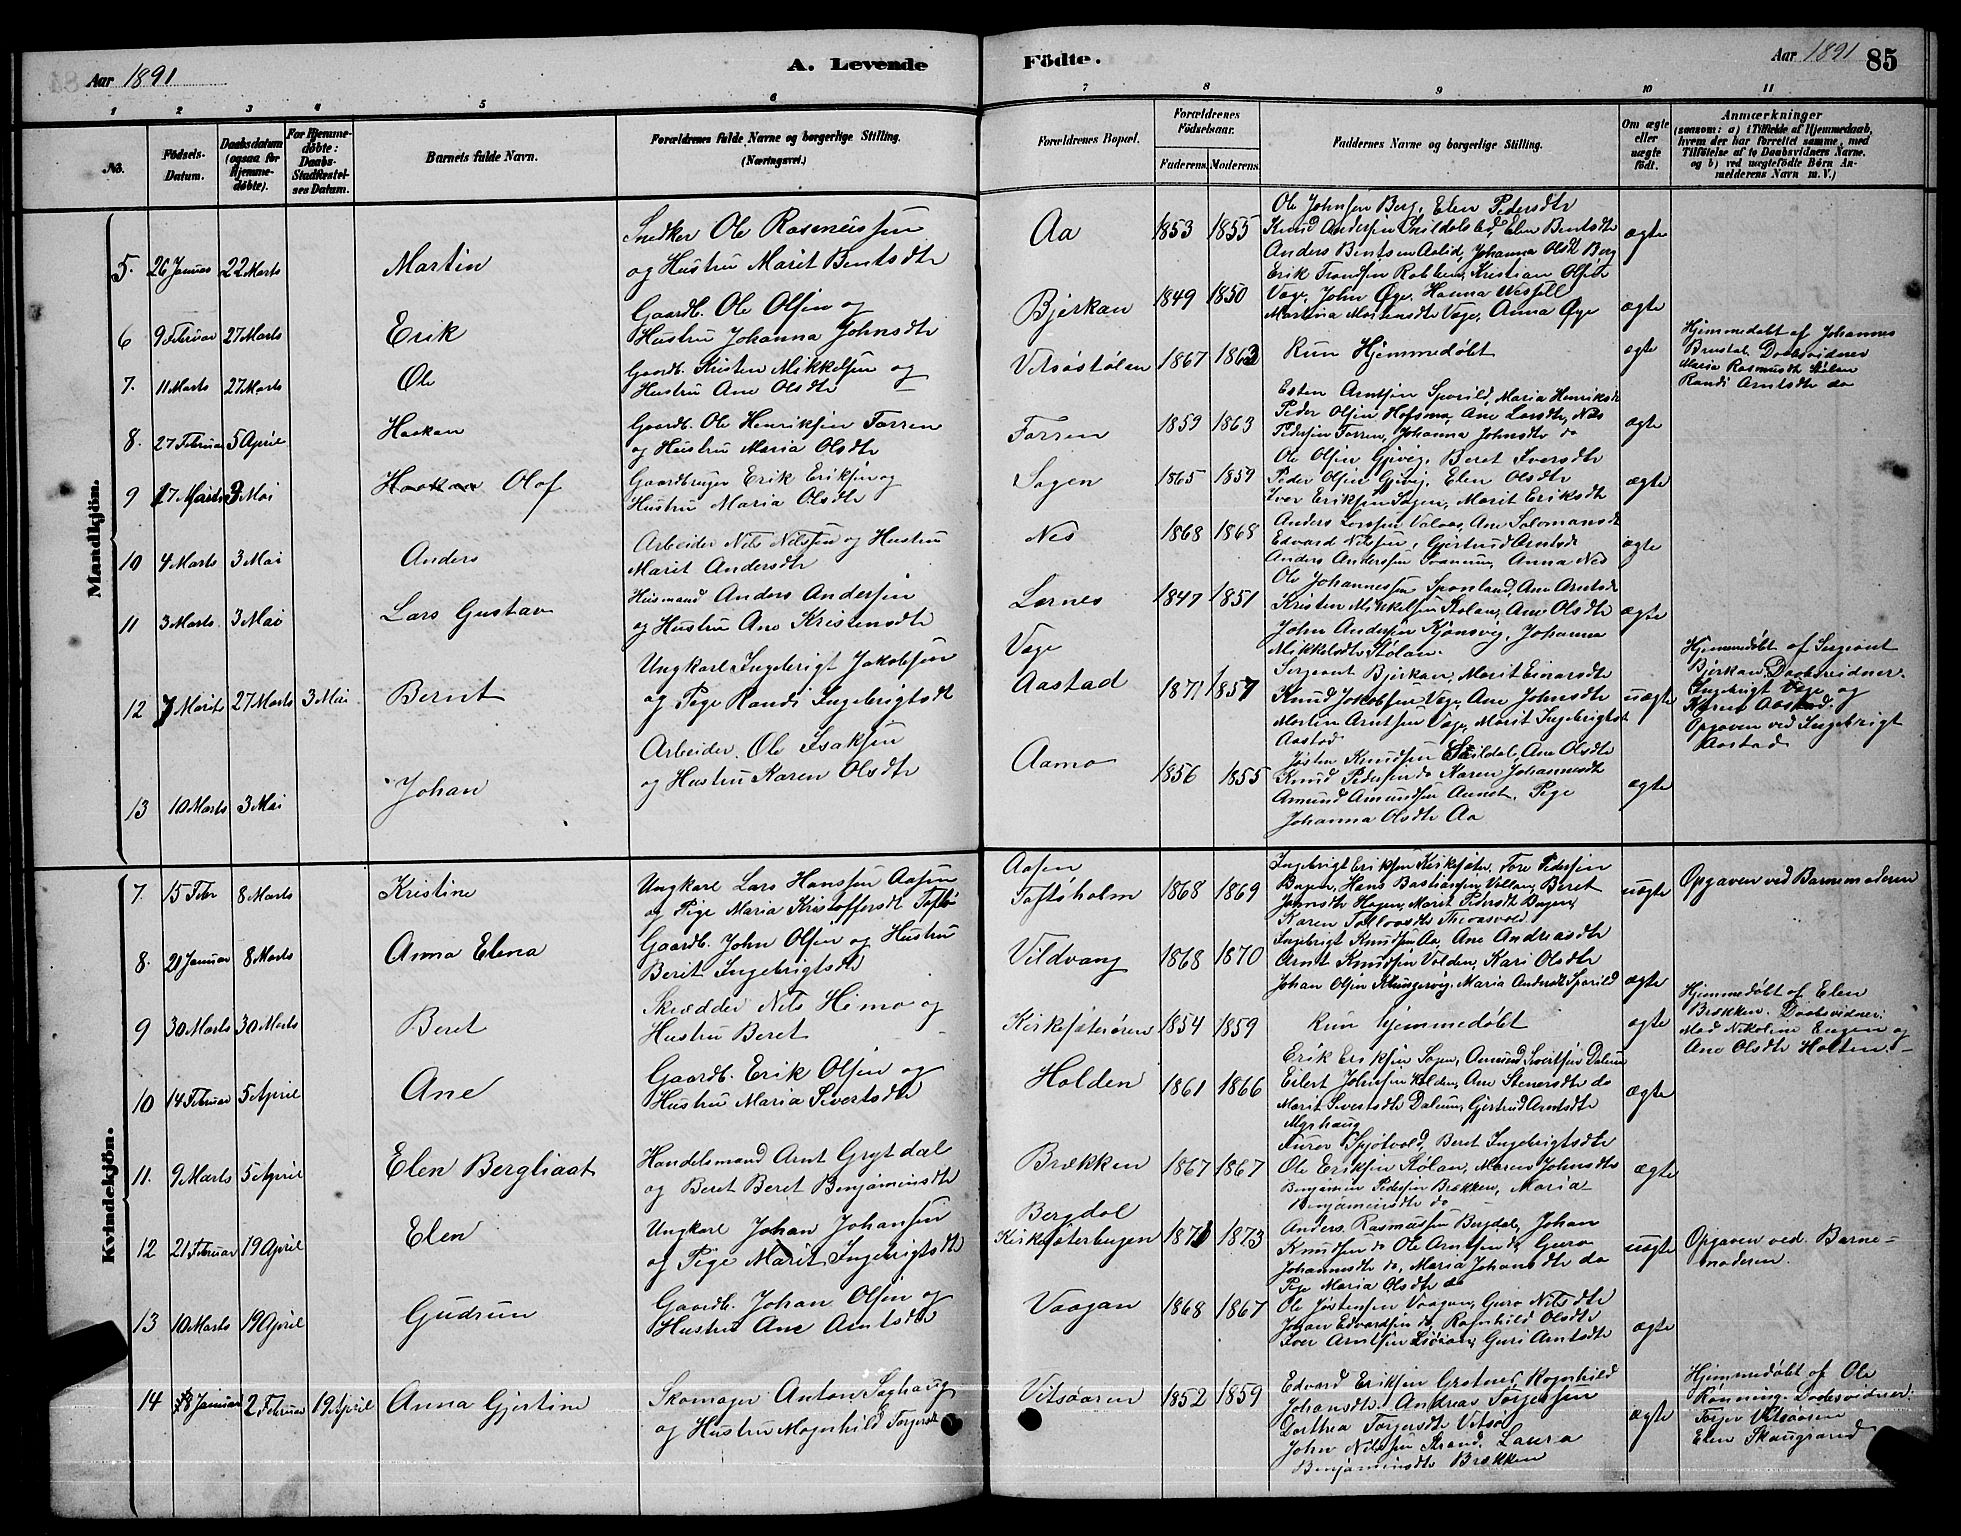 Aar 1891
A. Levende
Fødte.
Aar 1891
85
1 2 3 4 5 6 7 8 9 10 11
No.
Fødsels-
Datum.
Daabsdatum
(ogsaa for
Hjemme-
døbte).
For Hjemme-
døbte:
Daabs-
Stadfæstel-
ses Datum.
Barnets fulde Navn.
Forældrenes fulde Navne og borgerlige Stilling.
(Næringsvei.)
Forældrenes Bopæl.
Forældrenes
Fødselsaar.
Faderens Moderens
Faddernes Navne og borgerlige Stilling.
Om ægte
eller
uægte
født.
Anmærkninger
(saasom: a) i Tilfælde af Hjemmedaab,
hvem der har forrettet samme, med
Tilføielse af to Daabsvidners Navne,
og b) ved uægtefødte Børn An-
melderens Navn m. V.)
Mandkjøn.
5. 26 Januar 22 Marts
Martin
Snedker Ole Rasmussen
og Hustru Marit Bentsdtr
Aa
1853 1855
Ole Johnsen Berg, Elen Pedersdtr
Knud Andersen, Elen Bentsdtr
Anders Bentsen Aalid, Johanna Olsdtr Berg
ægte
6 9 Februar 27 Marts
Erik
Gaardb. Ole Olsen og
Hustru Johanna Johnsdtr
Bjerkan
1849 1850
Erik Trondsen Robben, Kristian Olsen
Vage, John Øye, Hanna Wessell
Martina Mortensdtr Vage, Anna Øye
ægte
7. 11 Marts 27 Marts
Ole
Gaardb. Kristen Mikkelsen og
Hustru Ane Olsdtr
Vitsøstølan
1867 1863
Kun Hjemmedøbt
ægte
Hjemmedøbt af Johannes
Daabsvidner
Maria Rasmusdtr Stølan
Randi Arntsdtr do
8. 27 Februar 5 April
Haakan
Gaardb. Ole Henriksen Forren
og Hustru Maria Olsdtr
Forren
1859 1863
Esten Arntsen Sporild, Maria Henriksdtr
Peder Olsen Hofsmo, Ane Larsdtr, Nils
Pedersen Forren, Johanna Johnsdtr do
ægte
9 17 Marts 3 Mai
Haakan Olaf
Gaardbruger Erik Eriksen og
Hustru Maria Olsdtr
Sagen
1865 1859
Ole Olsen Gjevig, Beret Iversdtr
Peder Olsen Gjevig, Elen Olsdtr
Iver Eriksen Sagen, Marit Eriksdtr
ægte
10 4 Marts 3 Mai
Anders
Arbeider Nils Nilssen og Hustru
Marit Andersdtr
Nes
1868 1868
Anders Larssen, Ane Salomonsdtr
Edvard Nilssen, Gjertrud Arntsdtr
Anders Anderssen, Anna Nes
ægte
11 3 Marts 3 Mai
Lars Gustav
Husmand Anders Andersen
og Hustru Ane Kristensdtr
Lernes
1847 1851
Ole Johannessen, Ane Arntsdtr
Kristen Mikkelsen Stølan, Ane Olsdtr
John Andersen Kjønsvig, Johanna
Mikkelsdtr Stølan.
ægte
12 7 Marts 27 Marts 3 Mai
Bernt
Ungkarl Ingebrigt Jakobsen
og Pige Randi Ingebrigtsdtr
Vage
Aastad
1871 1857
Sergeant Bjerkan, Marit Einarsdtr
Knud Jakobsen Vage, Ane Johnsdtr
Morten Arntsen Vage, Marit Ingebrigtsdtr
Aastad
uægte
Hjemmedøbt af Sergeant
Bjerkan, Daabsvidner.
Ingebrigt Vage og
Karen Aastad.
Opgaven ved Ingebrigt
Aastad
13 10 Marts 3 Mai
Johan
Arbeider Ole Isaksen
og Hustru Karen Olsdtr
Aamo
1856 1855
Jøsten Knudsen, Ane Olsdtr
Knud Pedersen do Karen Johannesdtr
Amund Amundsen Aunet, Pige
Johanna Olsdtr Aa
ægte
Kvindekjøn.
7. 15 Febr 8 Marts
Kristine
Ungkarl Lars Hanssen Aasen
og Pige Maria Kristoffersdtr
Aasen
Toftsholm
1868 1869
Ingebrigt Eriksen Kirkesæter, Tore Pedersen
Bugen, Hans Bastiansen Vollan, Beret
Johnsdtr Hagen, Marit Pedersdtr Bugen,
Karen
uægte
Opgaven ved Barnemoderen
8. 21 Januar 8 Marts
Anna Elena
Gaardb. John Olsen og Hustru
Berit Ingebrigtsdtr
Vildvang
1868 1870
Ingebrigt Knudsen Aa, Ane Andreasdtr
Arnt Knudsen Volden, Kari Olsdtr
Johan Olsen, Maria Andersdtr Sporild
ægte
9 30 Marts 30 Marts
Beret
Skrædder Nils Himo og
Hustru Beret
Kirkesæterøren
1854 1859
Kun hjemmedøbt
ægte
Hjemmedøbt af Elen
Brækken. Daabsvidner:
Mad Nikoline Engen og
Ane Olsdtr Holten.
10 14 Februar 5 April
Ane
Gaardb. Erik Olsen og
Hustru Maria Sivertsdtr
Holden
1861 1866
Erik Eriksen Sagen, Amund Sivertsen Dalum
Eilert Johnsen Holden, Ane Stenersdtr do
Marit Sivertsdtr Dalum, Gjertrud Arntsdtr
Myrhaug
ægte
11. 9 Marts 5 April
Elen Bergliaat
Handelsmand Arnt Grytdal
og Beret Beret Benjaminsdtr
Brækken
1867 1867
Spjøtvold, Beret Ingebrigtsdtr
Ole Eriksen Stølan, Maren Johnsdtr
Benjamin Pedersen Brækken, Maria
Benjaminsdtr do
ægte
12 21 Februar 19 April
Elen
Ungkarl Johan Johansen
og Pige Marit Ingebrigtsdtr
Bergdal
Kirkesæterbugen
1871 1873
Anders Rasmussen Bergdal, Johan
Knudsen do Ole Arntsen do, Guro
Johannesdtr do, Maria Johansdtr do
Pige Maria Olsdtr do
uægte
Opgaven ved Barne=
moderen.
13 10 Marts 19 April
Gudrun
Gaardb. Johan Olsen og
Hustru Ane Arntsdtr
Vaagan
1868 1867
Ole Jøstensen Vaagan, Guro Nilsdtr
Johan Edvardsen do, Ragnhild Olsdtr
Iver Arntsen, Guri Arntsdtr
ægte
14 18 Januar 2 Februar 19 April
Anna Gjertine
Skomager Anton Saghaug
og Hustru Magnhild Torgersdtr
Vitsøaaren
1852 1859
Edvard Eriksen, Ragnhild
Johansdtr. Andreas Torgersen
Dorthea Torgersdtr Vitsø
John Nilssen Strand, Laura
Benjaminsdtr Brækken
ægte
Hjemmedøbt af Ole
Rønning. Daabsvidner
Torger Vitsøosen
Elen Skaugrand